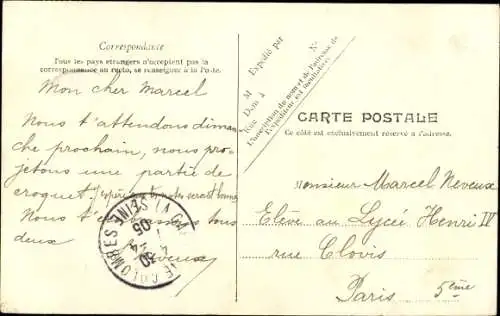 Correspondance
Tous les pays étrangers n'acceptent pas la
correspondance au recto, se renseigner à la Poste.
Mon cher Marcel
Nous t'attendons diman
che prochain, nous pro
jetons une partie de
croquet
Nous t' tous
deux
Neveux
LA GARENNE COLOMBES SEINE
30 4 05
Expédié par
M
Dem à
Rue
N°
L'inscription du nom et de l'adresse de
l'Expéditeur est facultative
CARTE POSTALE
Ce côté est exclusivement réservé à l'adresse.
Monsieur Marcel Neveux
Elève au Lycée Henri IV
rue Clovis
Paris 5ème